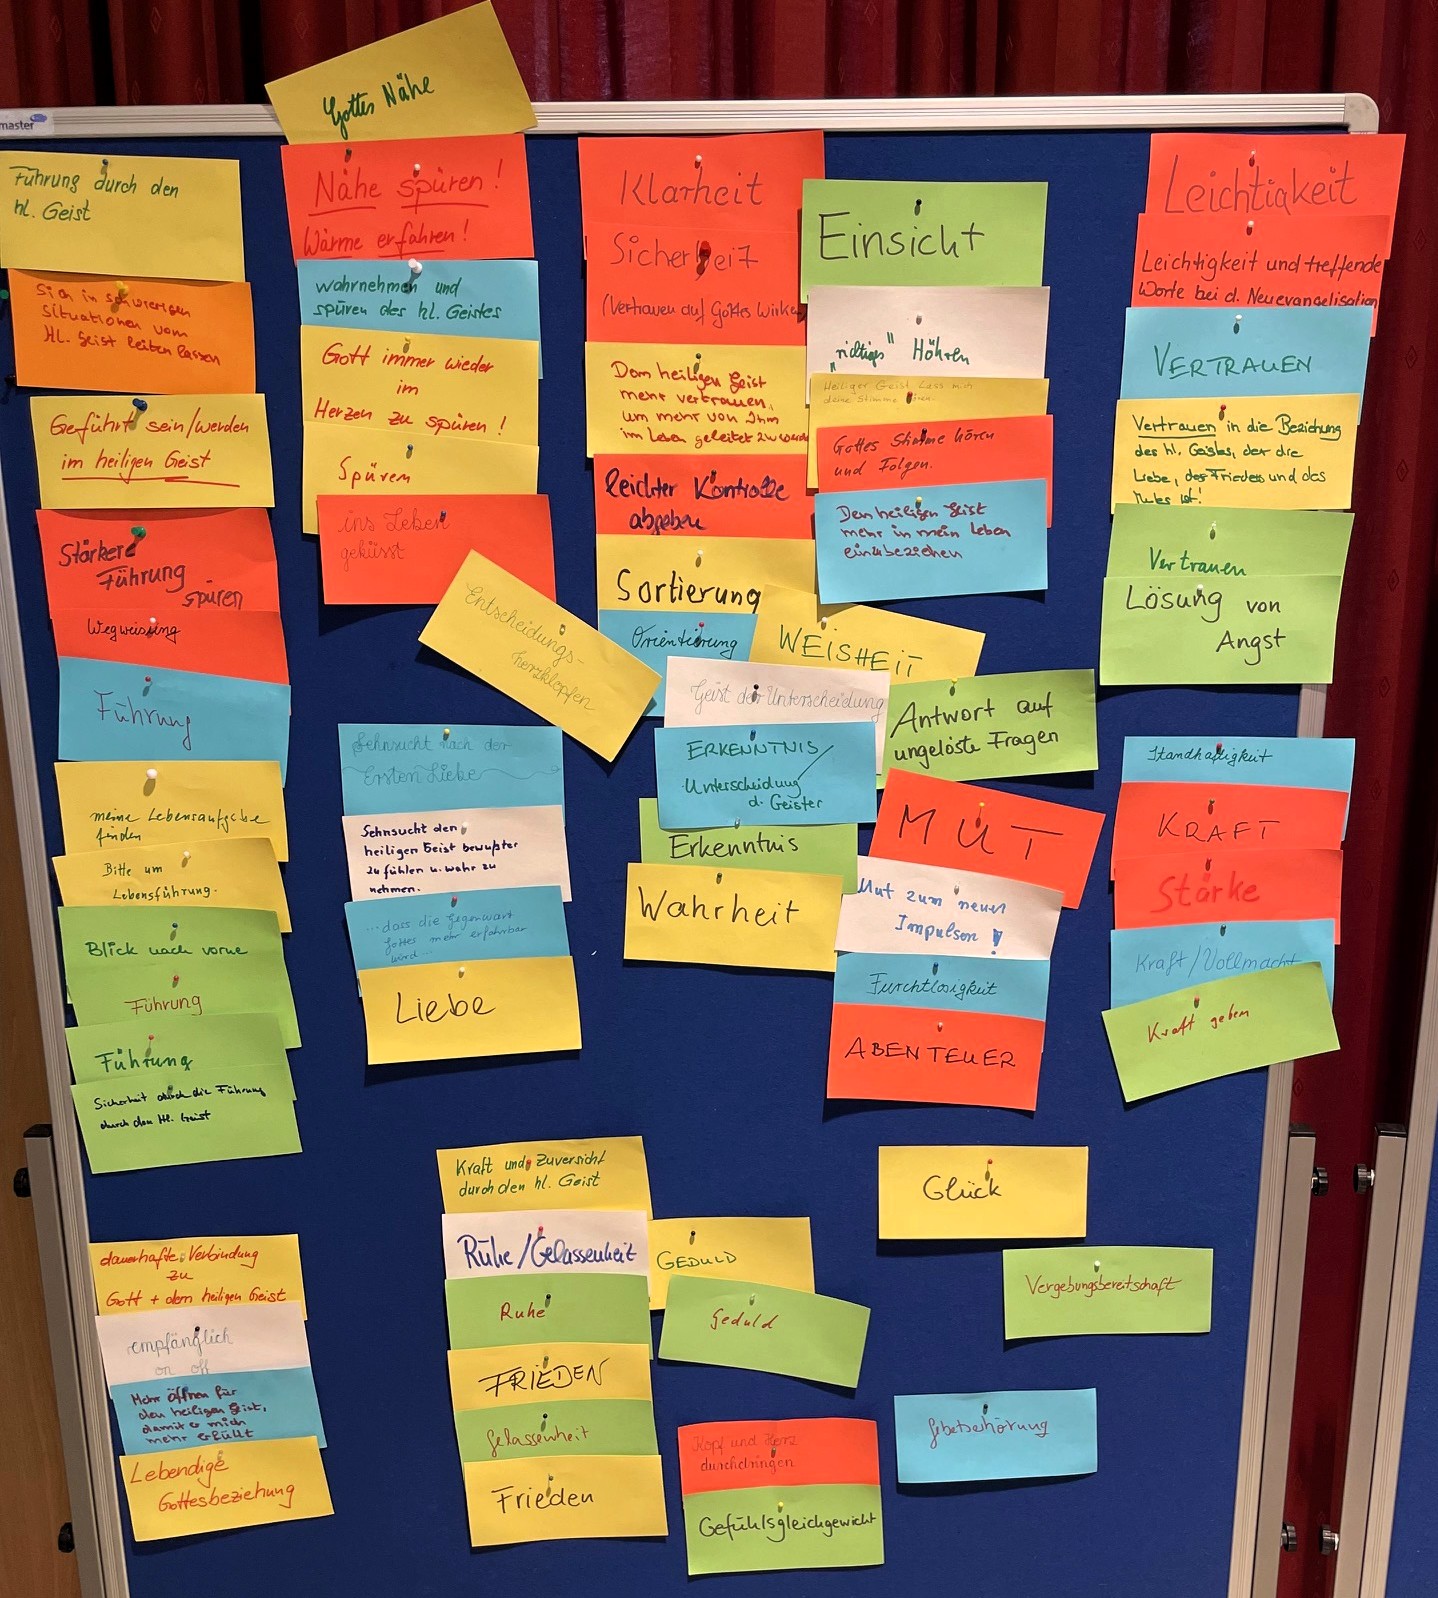 master
Gottes Nähe
Führung durch den
hl. Geist
Sich in schwierigen
situationen vom
Hl. Geist leiten lassen
Geführt sein/werden
im heiligen Geist
Stärkere
Führung
spüren
Wegweisung
Führung
meine Lebensaufgabe
finden
Bitte um
Lebensführung.
Blick nach vorne
Führung
Führung
Sicherheit durch die Führung
durch den Hl. Geist
dauerhafte Verbindung
zu
Gott + dem heiligen Geist
empfänglich
on off
Mehr öffnen für
den heiligen Geist,
damit er mich
mehr erfüllt
Lebendige
Gottesbeziehung
Nähe spüren!
Wärme erfahren!
wahrnehmen und
spüren des hl. Geistes
Gott immer wieder
im
Herzen zu spüren!
Spüren
ins Leben
geküsst
Entscheidungs-
herzklopfen
Sehnsucht nach der
Ersten Liebe
Sehnsucht den
heiligen Geist bewußter
zu fühlen u. wahr zu
nehmen.
...dass die Gegenwart
Gottes mehr erfahrbar
wird...
Liebe
Kraft und Zuversicht
durch den hl. Geist
Ruhe/Gelassenheit
Ruhe
FRIEDEN
Gelassenheit
Frieden
GEDULD
Geduld
Kopf und Herz
durchdringen
Gefühlsgleichgewicht
Klarheit
Sicherheit
(Vertrauen auf Gottes Wirken
Dem heiligen Geist
mehr vertrauen,
um mehr von Ihm
im Leben geleitet zu werden
leichter Kontrolle
abgeben
Sortierung
Orientierung
WEISHEIT
Geist der Unterscheidung
ERKENNTNIS/
Unterscheidung
d. Geister
Erkenntnis
Wahrheit
Einsicht
"richtiges" Höhren
Heiliger Geist Lass mich
deine Stimme hören.
Gottes Stimme hören
und Folgen.
Den heiligen Geist
mehr in mein Leben
einzubeziehen
Antwort auf
ungelöste Fragen
MUT
Mut zum neuen
Impulsen!
Furchtlosigkeit
ABENTEUER
Glück
Vergebungsbereitschaft
Gebetserhörung
Leichtigkeit
Leichtigkeit und treffende
Worte bei d. Neuevangelisation
VERTRAUEN
Vertrauen in die Beziehung
des hl. Geistes, der die
Liebe, des Friedens und des
Mutes ist!
Vertrauen
Lösung von
Angst
Standhaftigkeit
KRAFT
Stärke
Kraft/Vollmacht
Kraft geben